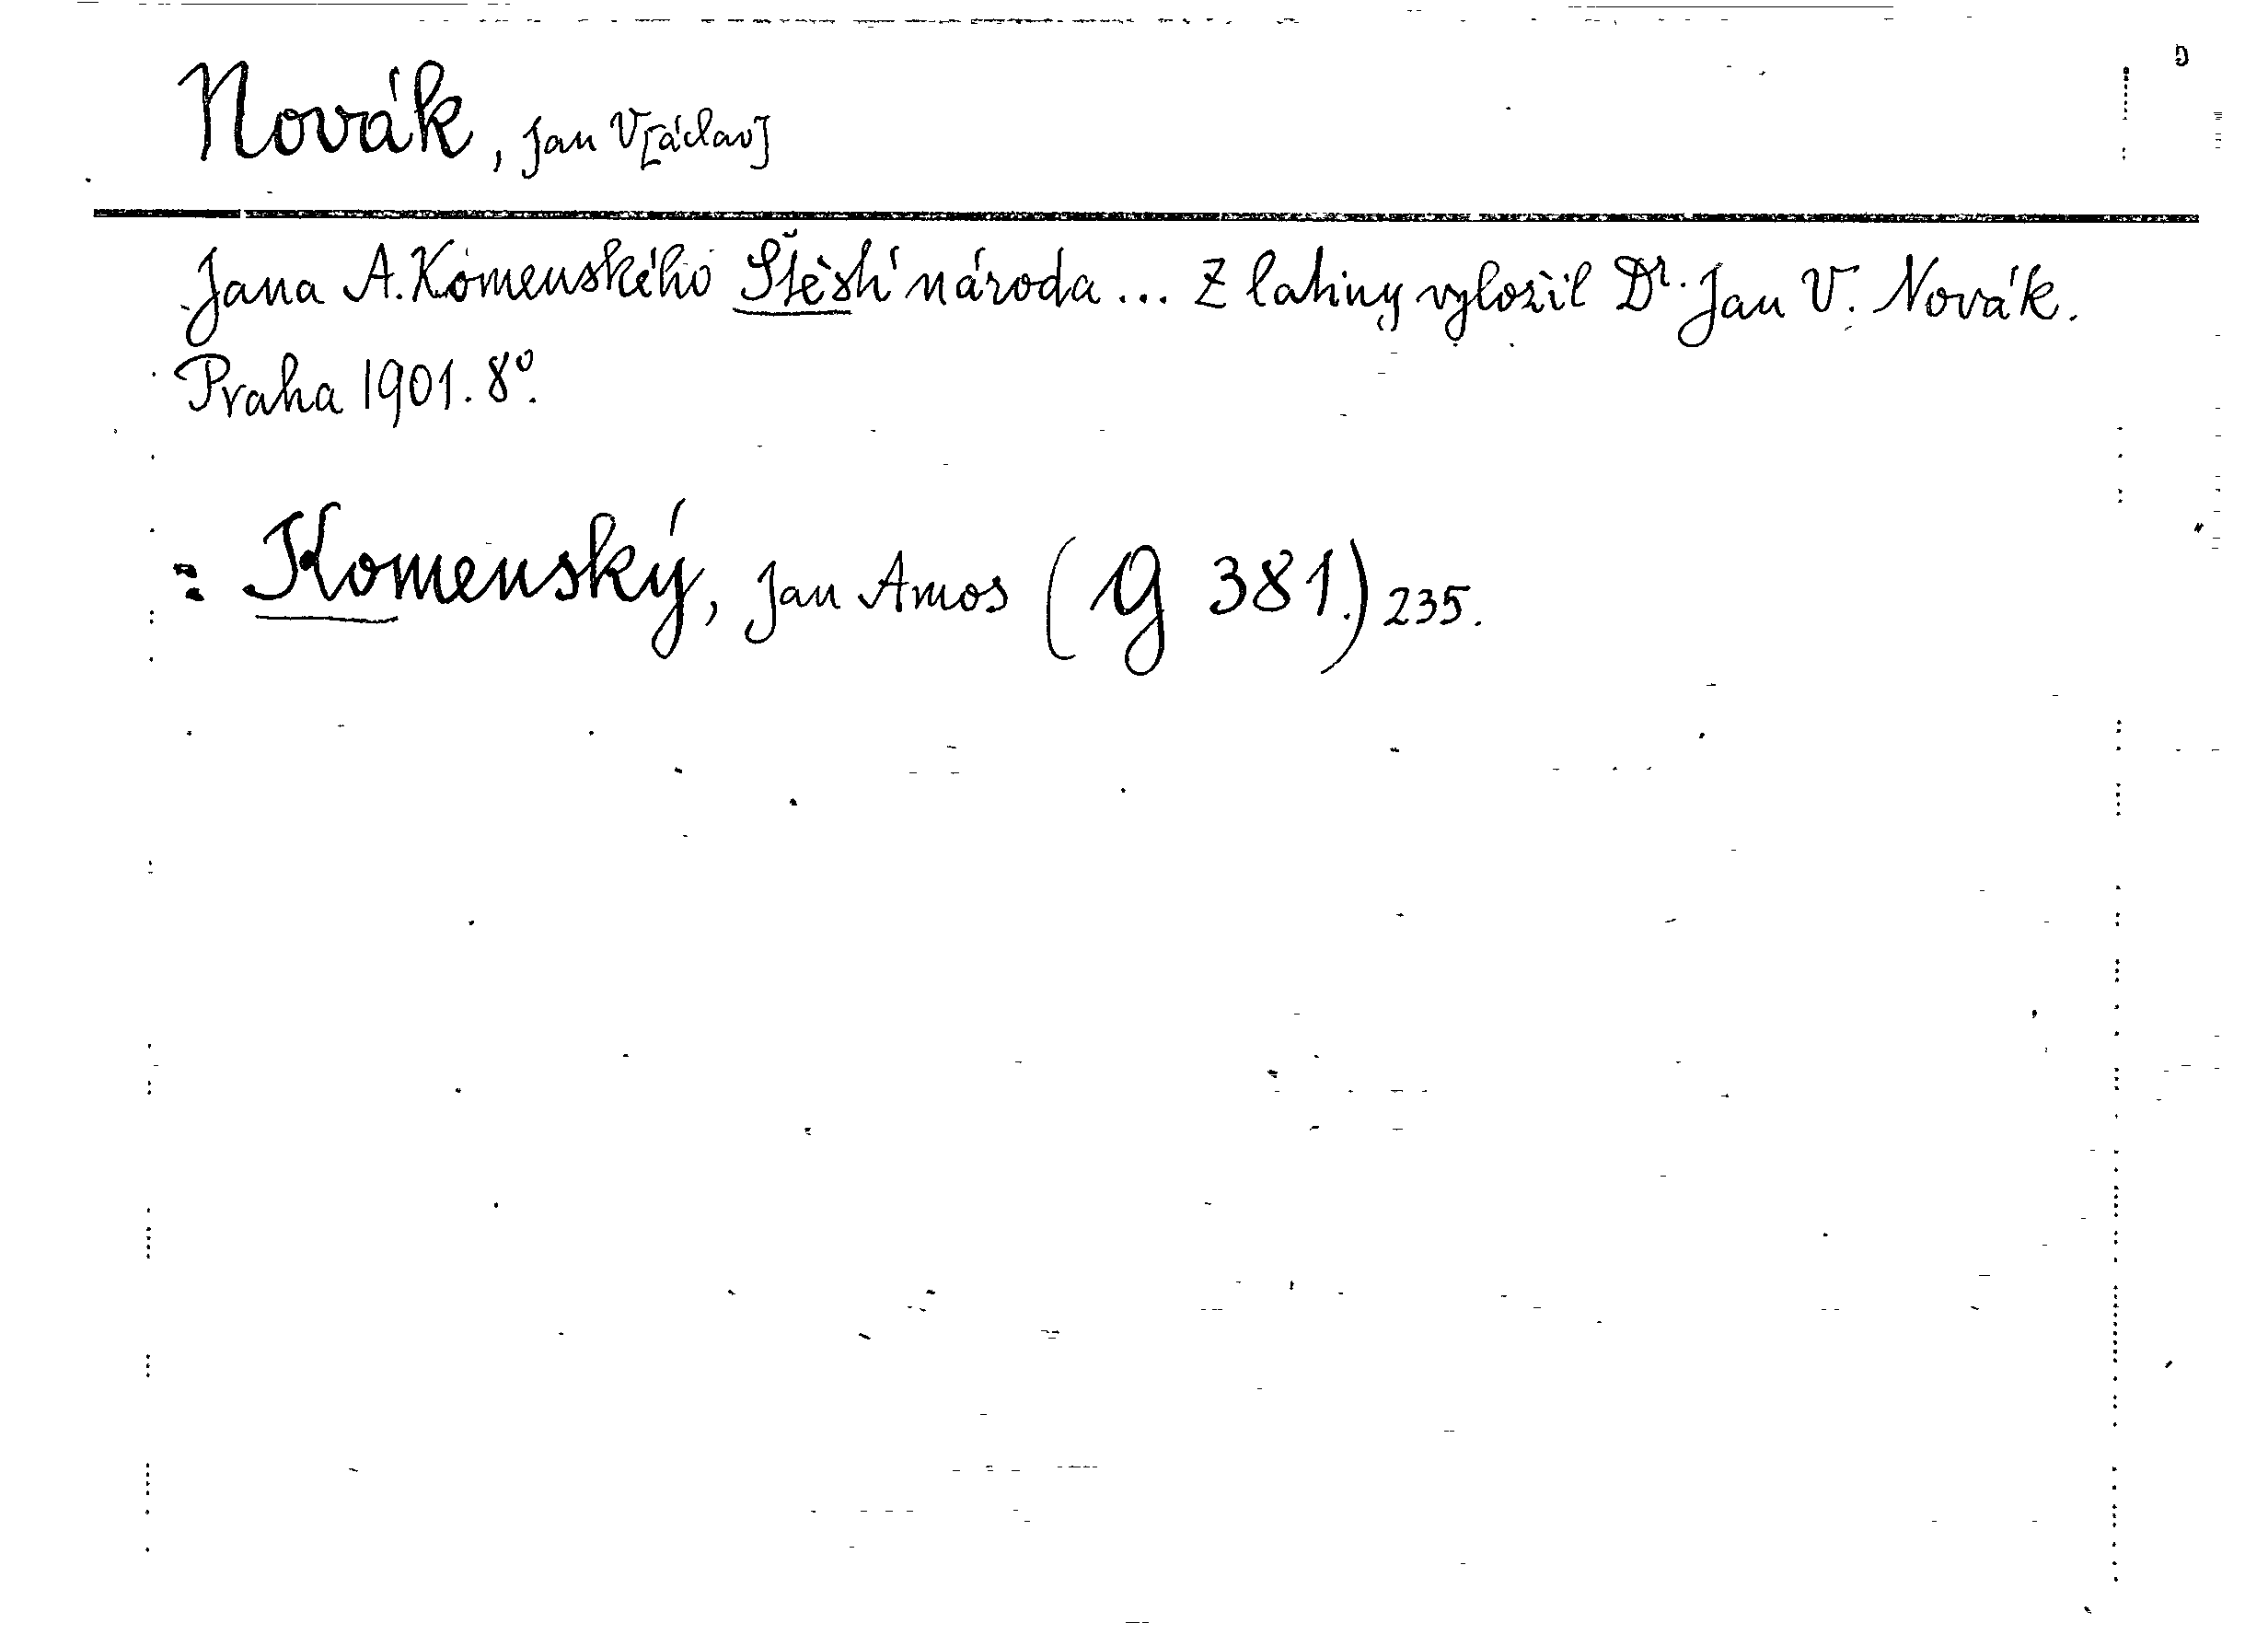 Novák, Jan V[áclav]
Jana A. Komenského Štěstí národa... Z latiny vyložil Dr. Jan V. Novák.
Praha 1901. 8º.
: Komenský, Jan Amos (G 381.) 235.